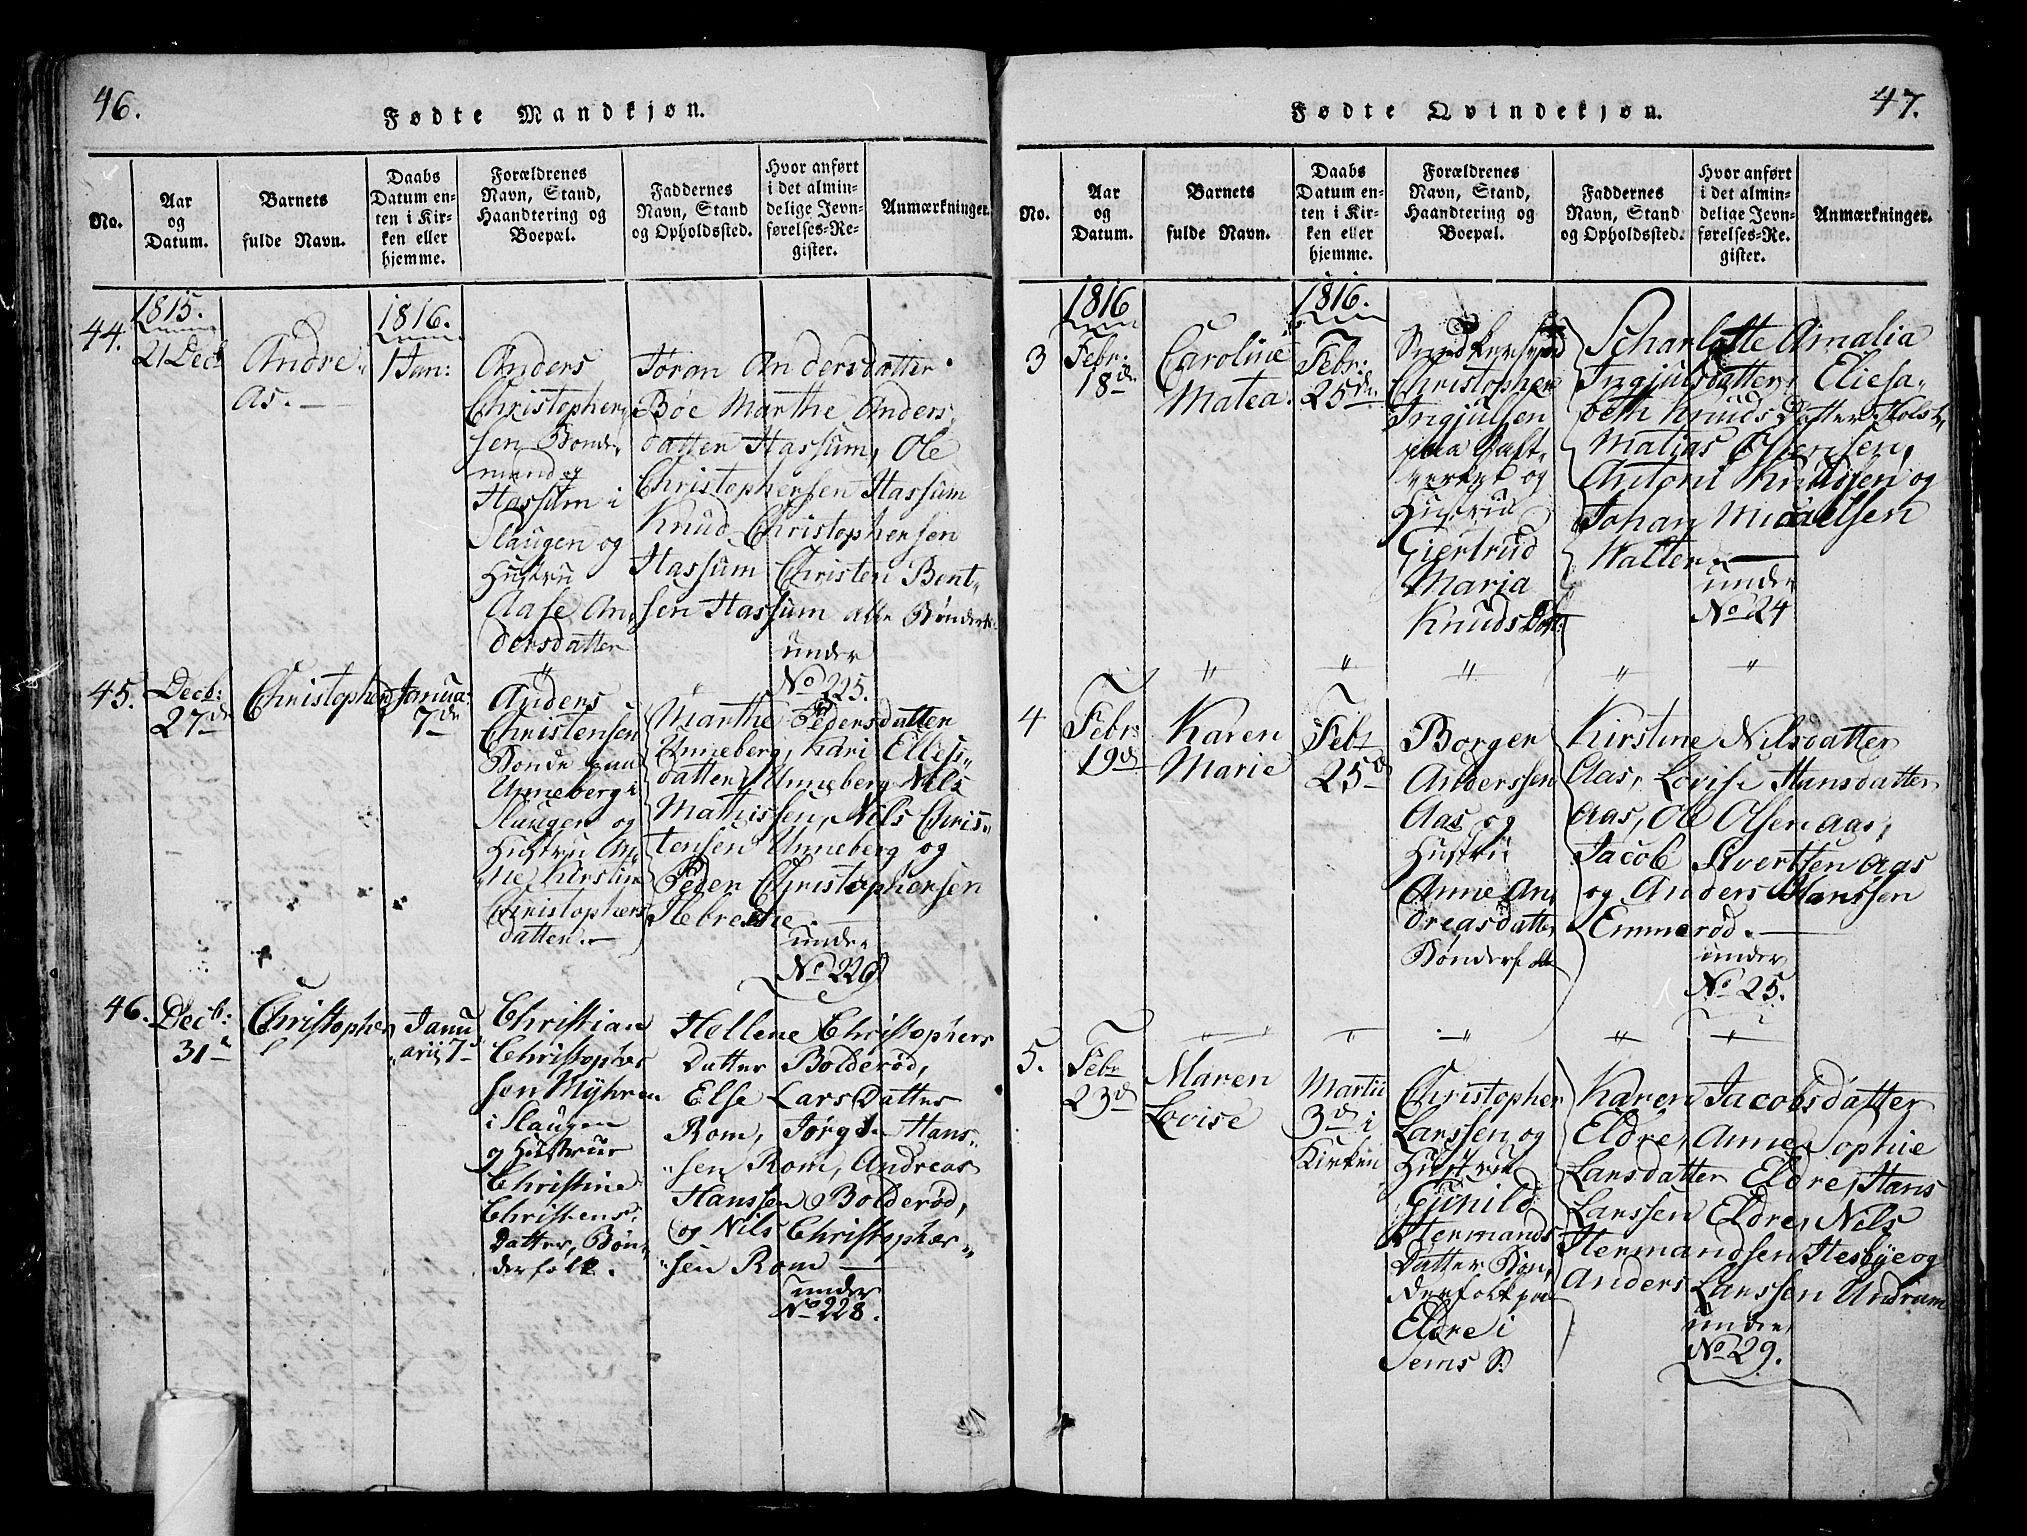 46.
Fødte Mandkjøn.
No.
Aar
og
Datum.
Barnets
fulde Navn.
Daabs
Datum en-
ten i Kir-
ken eller
hjemme.
Forældrenes
Navn, Stand,
Haandtering og
Boepæl.
Faddernes
Navn, Stand
og Opholdssted.
Hvor anført
i det almin-
delige Jevn-
førelses-Re-
gister.
Anmærkninger.
44.
1815.
21 Decb
Andre-
as.
1816.
1 Jan:
Anders
Christopher-
sen Bonde
mand
Hassum i
Slaugen og
Hustru
Aase An-
dersdatter
Joran Andersdatter
Bøe Marthe Anders
datter Hassum, Ole
Christophersen Hassum
Knud Christophersen
Hassum Christen Bent-
sen Hassum alle Bønder
under
No 225.
45.
Decb:
27de
Christopher
Janua:
7de
Anders
Christensen
Bonde paa
Unneberg i
Slaugen og
Hustru An-
ne Kirstine
Christophers
datter.
Marthe Pedersdatter
Unneberg, Kari Ellefs-
datter Unneberg Nils
Mathissen, Nils Chris-
tensen Unneberg og
Peder Christophersen
under
No 226
46.
Decb:
31
Christopher
Janu
arii 7
Christian
Christopher
sen Myhren
i Slaugen
og Hustrue
Christine
Christens
Datter, Bøn-
derfolk.
Hellene Christophers
Datter Bolderød,
Else Lars Datter
Rom, Jørgen Hans-
sen Rom, Andreas
Hanssen Bolderød,
og Nils Christopher-
sen Rom
under
No 228.
47.
Fødte Qvindekjøn.
No.
Aar
og
Datum.
Barnets
fulde Navn.
Daabs
Datum en-
ten i Kir-
ken eller
hjemme.
Forældrenes
Navn, Stand,
Haandtering og
Boepæl.
Faddernes
Navn, Stand
og Opholdssted.
Hvor anført
i det almin-
delige Jevn-
førelses-Re-
gister.
Anmærkninger.
3
1816
Febr:
18de
Caroline
Matea.
1816.
Febr:
25de
Christopher
Ingjulsen
paa
og
Hustru
Giertrud
Maria
Knudsdat
Scharlotte Amalia
Ingjulsdatter, Eliesa-
beth Knuds Datter
Matias
Antoni Knudsen og
Johan
under
No 24
4
Febr:
19de
Karen
Marie
Febr
25d
Borger
Anderssen
Aas og
Hustru
Anne An-
dreasdatter
Bønderfolk
Kirstine Nilsdatter
Aas, Lovise Hansdatter
Aas, Ole Olsen Aas,
Jacob Sivertsen Aas
og Anders Hanssen
Emmerød.
under
No 25.
5.
Febr
23d
Maren
Lovise
Martii
3d i
Kirken
Christopher
Larssen og
Hustrue
Gunild
Hermands
Datter Bøn-
derfolk paa
Eldre i
Sems S:
Karen Jacobsdatter
Eldre, Anne Sophie
Larsdatter Eldre, Hans
Larssen Eldre, Nils
Hermandsen Hesbye og
Anders Larssen Undrum
under
No 29.